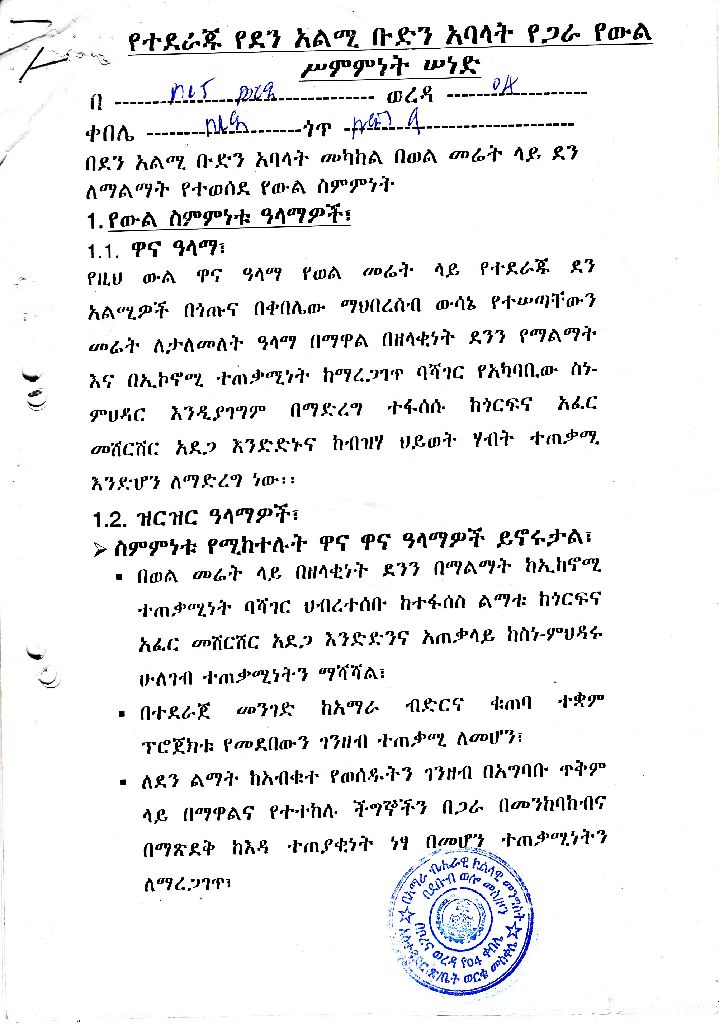 የተደራጁ የደን አልሚ ቡድን አባላት የጋራ የውል
ሥምምነት ሠነድ
በ ---------------------------------- ወረዳ ------------------
ቀበሌ ---------------------ጎጥ -----------------------------
በደን አልሚ ቡድን አባላት መካከል በወል መሬት ላይ ደን
ለማልማት የተወሰደ የውል ስምምነት
1. የውል ስምምነቱ ዓላማዎች፣
1.1. ዋና ዓላማ፣
የዚህ ውል ዋና ዓላማ የወል መሬት ላይ የተደራጁ ደን
አልሚዎች በጎጡና በቀበሌው ማህበረሰብ ውሳኔ የተሠጣቸውን
መሬት ለታለመለት ዓላማ በማዋል በዘላቂነት ደንን የማልማት
እና በኢኮኖሚ ተጠቃሚነት ከማረጋገጥ ባሻገር የአካባቢው ስነ-
ምህዳር እንዲያገግም በማድረግ ተፋሰሱ ከጎርፍና አፈር
መሸርሸር አደጋ እንድድኑና ከብዝሃ ህይወት ሃብት ተጠቃሚ
እንድሆን ለማድረግ ነው፡፡
1.2. ዝርዝር ዓላማዎች፣
➢ ስምምነቱ የሚከተሉት ዋና ዋና ዓላማዎች ይኖሩታል፣
▪ በወል መሬት ላይ በዘላቂነት ደንን በማልማት ከኢከኖሚ
ተጠቃሚነት ባሻገር ህብረተሰቡ ከተፋሰስ ልማቱ ከጎርፍና
አፈር መሸርሸር አደጋ እንድድንና አጠቃላይ ከስነ-ምህዳሩ
ሁለገብ ተጠቃሚነትን ማሻሻል፣
▪ በተደራጀ መንገድ ከአማራ ብድርና ቁጠባ ተቋም
ፕሮጀክቱ የመደበውን ገንዘብ ተጠቃሚ ለመሆን፣
▪ ለደን ልማት ከአብቁተ የወሰዱትን ገንዘብ በአግባቡ ጥቅም
ላይ በማዋልና የተተከሉ ችግኞችን በጋራ በመንከባከብና
በማጽደቅ ከእዳ ተጠያቂነት ነፃ በመሆን ተጠቃሚነትን
ለማረጋገጥ፣
በአማራ ብሔራዊ ክልላዊ መንግስት
በደቡብ ወሎ መስ/ዞን
በቦረና ወረዳ የ04 ቀበሌ